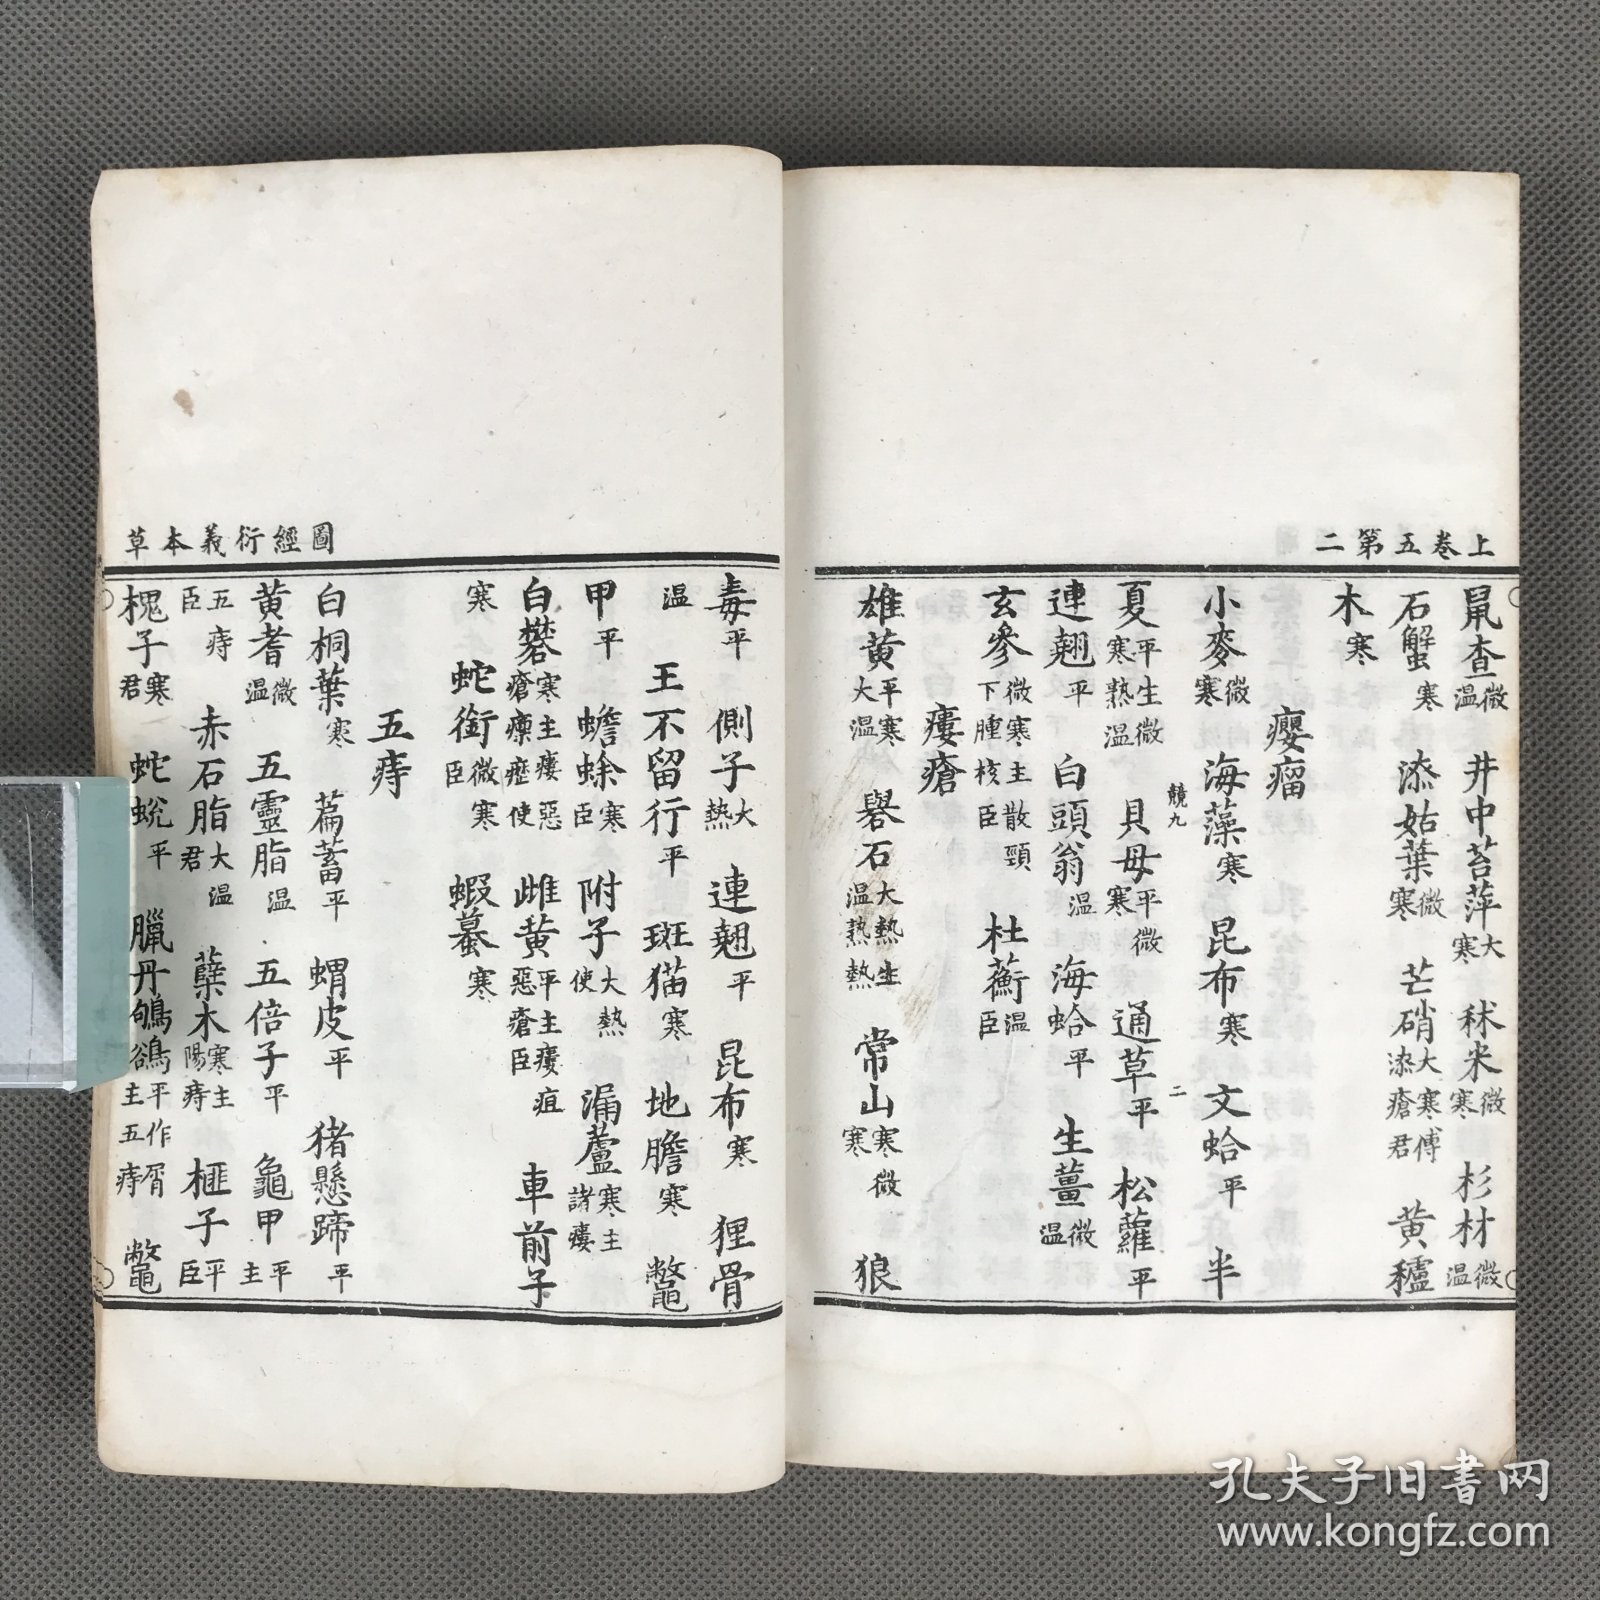 上卷五第二
鼠查微温 井中苔萍大寒 秫米微寒 杉材微温
石蟹寒 漆姑葉微寒 芒硝大寒傅漆瘡君 黄櫨
木寒
癭瘤
小麥微寒 海藻寒 昆布寒 文蛤平 半
夏平生微寒熟温 貝母平微寒 通草平 松蘿平
競九 二
連翹平 白頭翁温 海蛤平 生薑微温
玄參微寒主散頸下腫核臣 杜蘅温臣
瘻瘡
雄黄平寒大温 礜石大熱生温熟熱 常山寒微寒 狼
圖經衍義本草
毒平 側子大熱 連翹平 昆布寒 狸骨
温 王不留行平 斑猫寒 地膽寒 鼈
甲平 蟾蜍寒臣 附子大熱使 漏蘆寒主諸瘻
白礬寒主瘻惡瘡瘰癧使 雌黄平主瘻疽惡瘡臣 車前子
寒 蛇銜微寒臣 蝦蟇寒
五痔
白桐葉寒 萹蓄平 蝟皮平 猪懸蹄平
黄耆微温 五靈脂温 五倍子平 龜甲平主
五痔臣 赤石脂大温君 蘗木寒主陽痔 榧子平臣
槐子寒君 蛇蛻平 臘丹 鴝鵒平作屑主五痔 鼈
孔夫子旧书网
www.kongfz.com